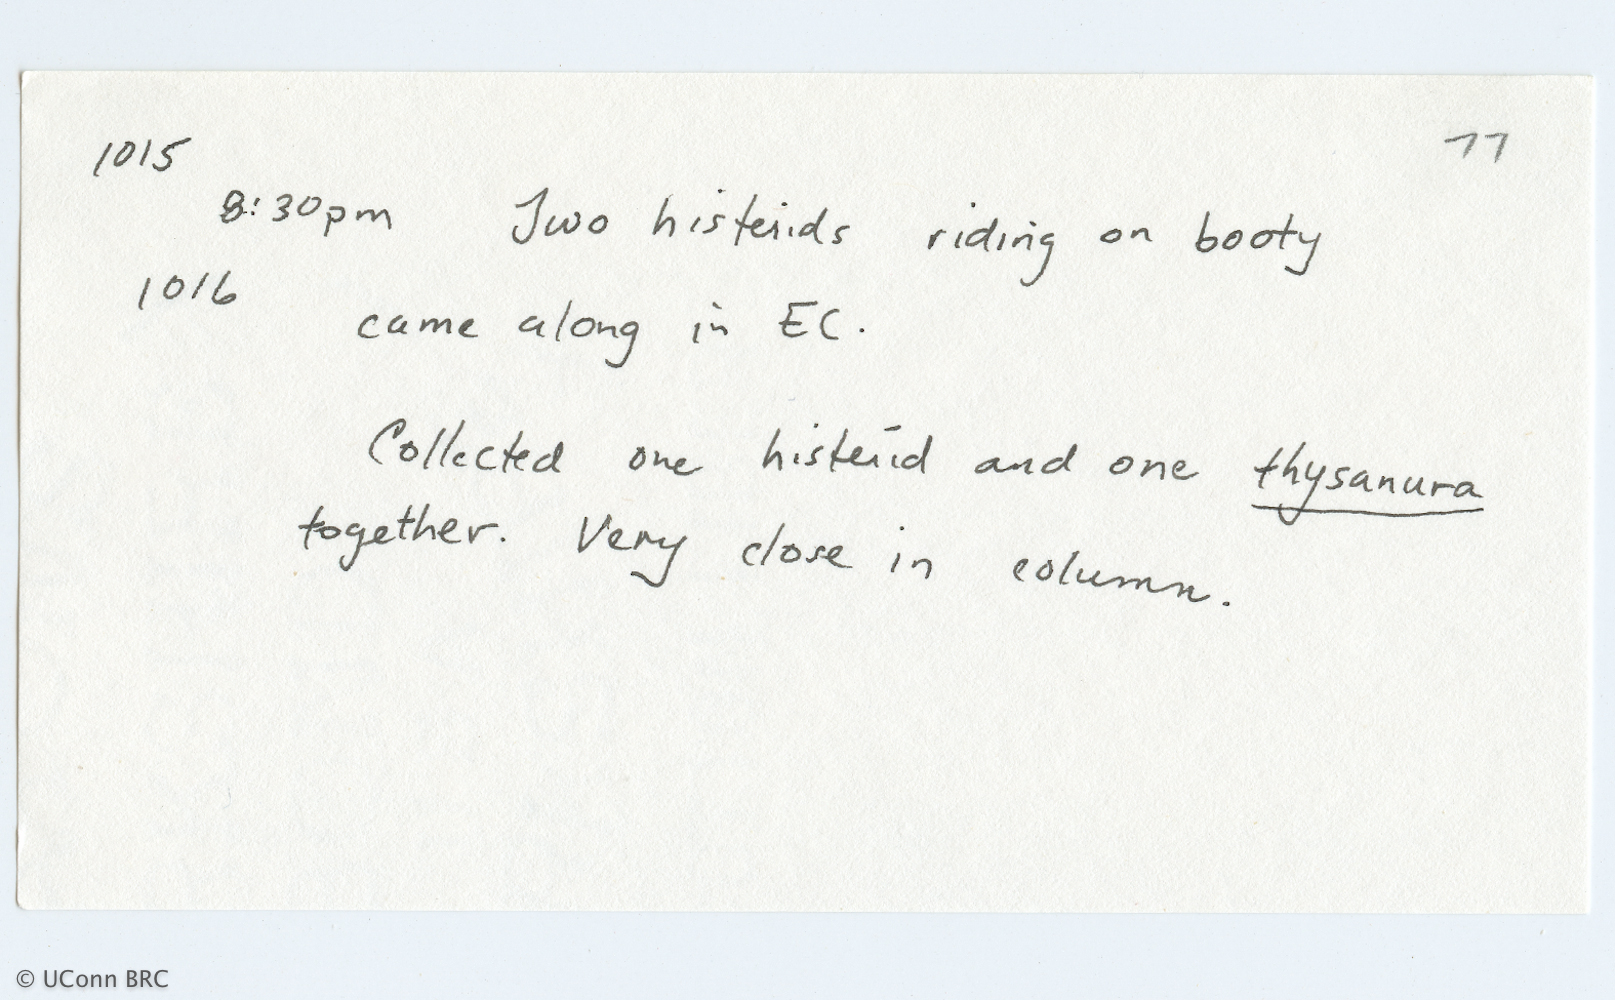 1015
77
8:30pm Two histerids riding on booty
1016
came along in EC.
Collected one histerid and one thysanura
together. Very close in column.
© UConn BRC